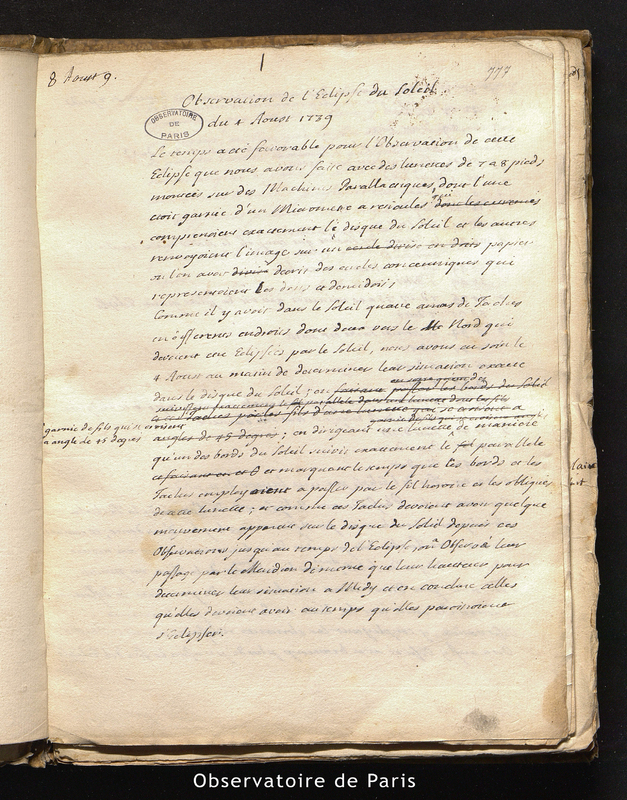 8 Aoust 9.
777
Observation de l'Eclipse du Soleil
du 4 Aoust 1739
OBSERVATOIRE
DE
PARIS
Le temps a été favorable pour l'Observation de cette
Eclipse que nous avons faite avec des lunettes de 7 a 8 pieds
montées sur des Machines Parallactiques, dont l'une
etoit garnie d'un Micrometre a reticules qui dont les
comprenoient exactement le disque du Soleil et les autres
renvoyoient l'image sur un cercle divisé en doits papier
ou l'on avoit divisé decrit des cercles concentriques qui
representoient les doits et demi doits
Comme il y avoit dans le Soleil quatre amas de Taches
en differents endroits dont deux vers le Nord qui
devoient etre Eclipsées par le Soleil, nous avons eu soin le
4 Aoust au matin de determiner leur situation exacte
dans le disque du Soleil; en faisant passer les bords du Soleil
garnie de fils qui se croisent
a angle de 45 degrés
angles de 45 degrés; en dirigeant une lunette de maniere
qu'un des bords du Soleil suivit exactement le fil parallele
et marquant le temps que les bords et les
Taches employoient a passer par le fil horaire et les obliques
de cette lunette; et comme ces Taches devoient avoir quelque
mouvement apparent sur le disque du Soleil depuis ces
Observations jusqu'au temps de l'Eclipse, on Observa leur
passage par le Meridien de meme que leur hauteur pour
determiner leur situation a Midy et en conclure celles
qu'elles devoient avoir au temps qu'elles paroissoient
s'Eclipser.
Observatoire de Paris